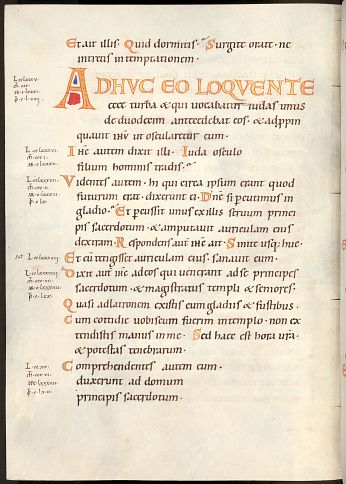 Et ait illis. Quid dormitis. Surgite orate. ne
intretis in temptationem.
ADHVC EO LOQVENTE
ecce turba & qui vocabatur iudas unus
de duodecim antecedebat eos. & adppin
quauit ihu ut oscularetur eum.
Ihc autem dixit illi. Iuda osculo
filium hominis tradis.
Videntes autem hi qui circa ipsum erant quod
futurum erat. dixerunt ei. Dne si pcutimus in
gladio. Et pcussit unus ex illis seruum princi
pis sacerdotum. & amputauit auriculam eius
dextram. Respondens aut ihc ait. Sinite usq; huc.
Et cu tetigisset auriculam eius. sanauit eum.
Dixit aut ihc ad eos qui uenerant ad se principes
sacerdotum. & magistratus templi & seniores.
Quasi ad latronem existis cum gladiis & fustibus.
Cum cotidie uobiscum fuerim in templo. non ex
tendistis manus in me. Sed haec est hora ura.
& potestas tenebrarum.
Comprehendentes autem eum.
duxerunt ad domum
principis sacerdotum.